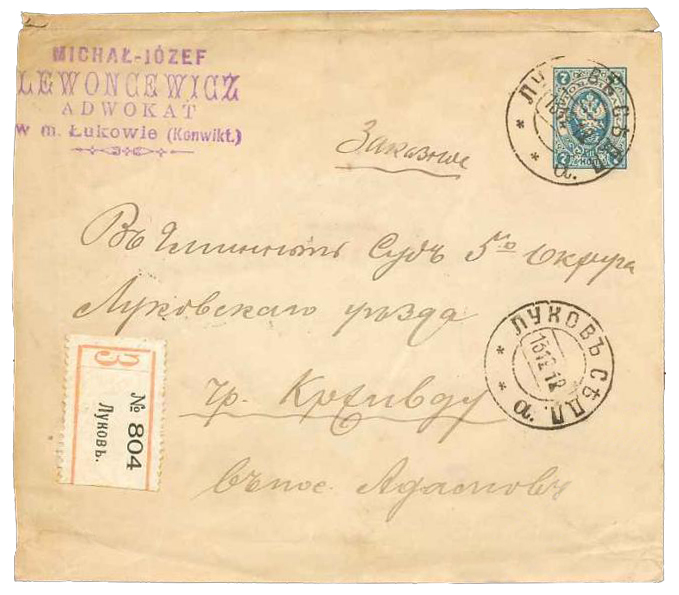 MICHAŁ-JÓZEF
LEWONCEWICZ
ADWOKAT
w m. Łukowie (Konwikt.)
Заказное
7
7
ЛУКОВЪ СѢДЛ.
Въ Гминный Судъ 5го Округа
Луковскаго уѣзда
чр. Кривду
въ пос. Адамовъ
ЛУКОВЪ СѢДЛ.
13 12 12
З
№ 804
Луковъ.